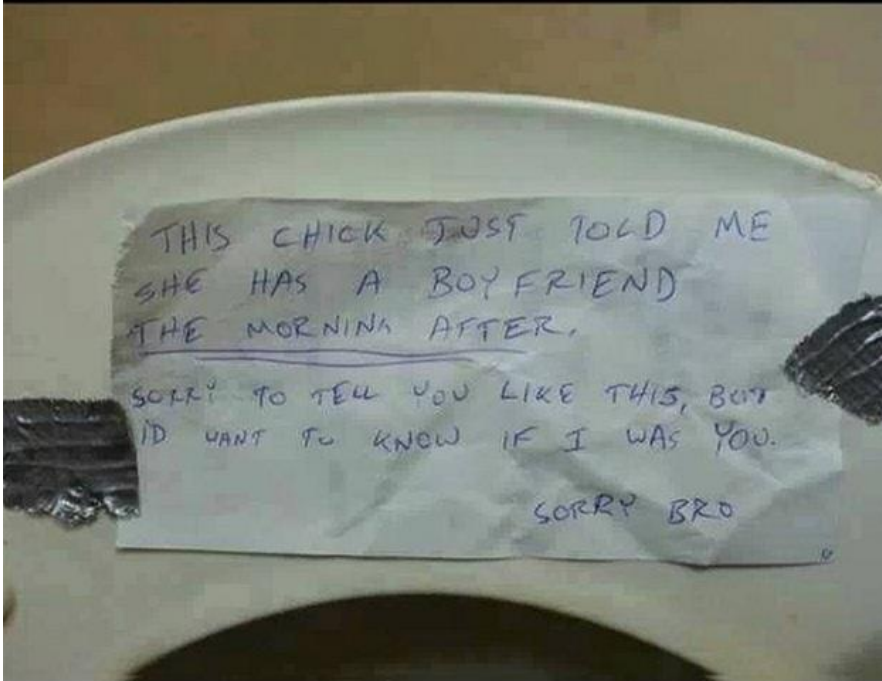 THIS CHICK JUST TOLD ME
SHE HAS A BOYFRIEND
THE MORNING AFTER.
SORRY TO TELL YOU LIKE THIS, BUT
ID WANT TO KNOW IF I WAS YOU.
SORRY BRO